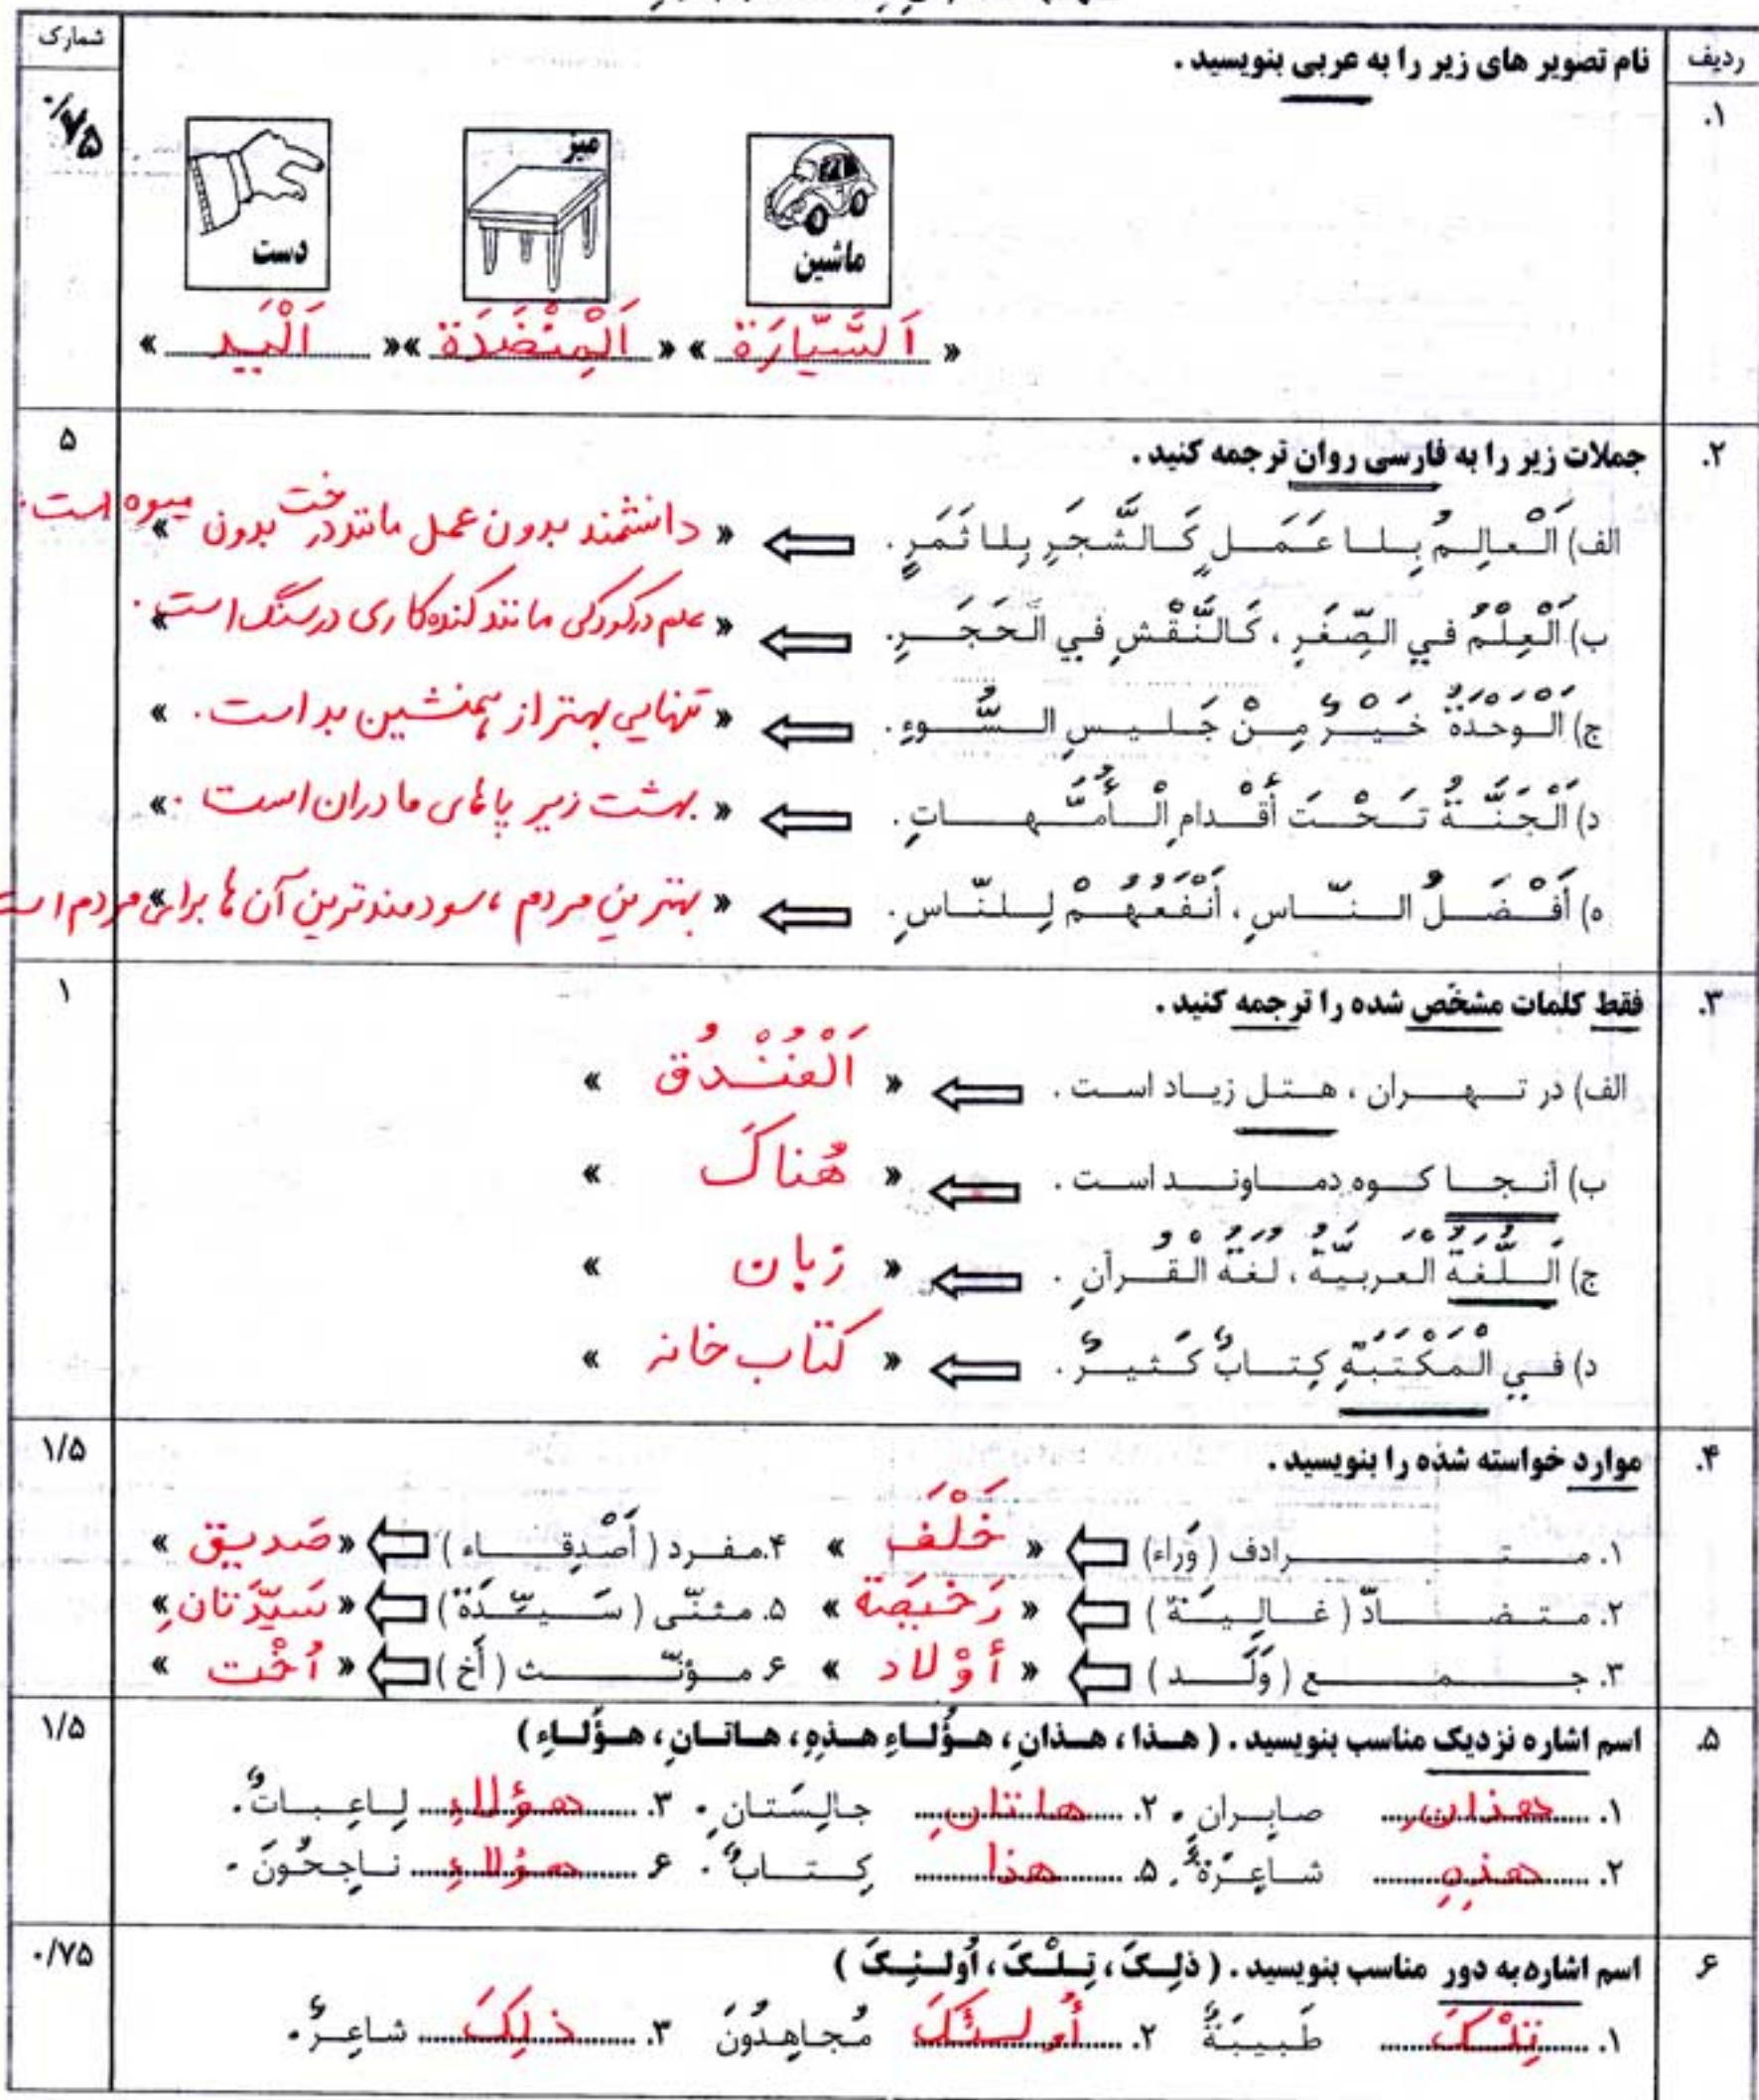 ردیف
نام تصویر های زیر را به عربی بنویسید .
شمارک
۱.
۰/۷۵
ماشین
میز
دست
« اَلسَّيّارَة » « اَلْمِنْضَدَة » « اَلْيَد »
۲.
جملات زیر را به فارسی روان ترجمه کنید .
۵
الف) اَلْعالِمُ بِلا عَمَلٍ كَالشَّجَرِ بِلا ثَمَرٍ . « دانشمند بدون عمل مانند درخت بدون میوه است. »
ب) اَلْعِلْمُ في الصِّغَرِ ، كَالنَّقْشِ في الْحَجَرِ. « علم در کودکی مانند کنده کاری در سنگ است. »
ج) اَلْوَحْدَةُ خَيْرٌ مِنْ جَليسِ السُّوءِ. « تنهایی بهتر از همنشین بد است . »
د) اَلْجَنَّةُ تَحْتَ أَقْدامِ الْأُمَّهاتِ . « بهشت زیر پاهای مادران است . »
ه) أَفْضَلُ النّاسِ ، أَنْفَعُهُمْ لِلنّاسِ. « بهترین مردم ، سودمندترین آن ها برای مردم »
۳.
فقط کلمات مشخّص شده را ترجمه کنید .
۱
الف) در تهران ، هتل زیاد است . « اَلْفُنْدُق »
ب) آنجا کوه دماوند است . « هُناكَ »
ج) اَللُّغَةُ الْعَرَبيَّةُ ، لُغَةُ الْقُرآنِ . « زبان »
د) في الْمَكْتَبَةِ كِتابٌ كَثيرٌ . « کتاب خانه »
۴.
موارد خواسته شده را بنویسید .
۱/۵
۱. مترادف (وَراء) « خَلْفَ » ۴. مفرد ( أَصْدِقاء ) « صَديق »
۲. متضادّ ( غالِيَة ) « رَخيصَة » ۵. مثنّی ( سَيِّدَة ) « سَيِّدَتانِ »
۳. جمع ( وَلَد ) « أوْلاد » ۶. مؤنّث ( أَخ ) « اُخْت »
۵.
اسم اشاره نزدیک مناسب بنویسید . ( هذا ، هذانِ ، هؤُلاءِ هذِهِ ، هاتانِ ، هؤُلاءِ )
۱/۵
۱. هذانِ صابِرانِ . ۲. هاتانِ جالِسَتانِ . ۳. هؤلاءِ لاعِباتٌ .
۲. هذِهِ شاعِرَةٌ . ۵. هذا كِتابٌ . ۶ هؤُلاءِ ناجِحُونَ .
۶
اسم اشاره به دور مناسب بنویسید . ( ذلِكَ ، تِلْكَ ، أُولئِكَ )
۰/۷۵
۱. تِلْكَ طَبيبَةٌ ۲. أُولئِكَ مُجاهِدُونَ ۳. ذلِكَ شاعِرٌ .